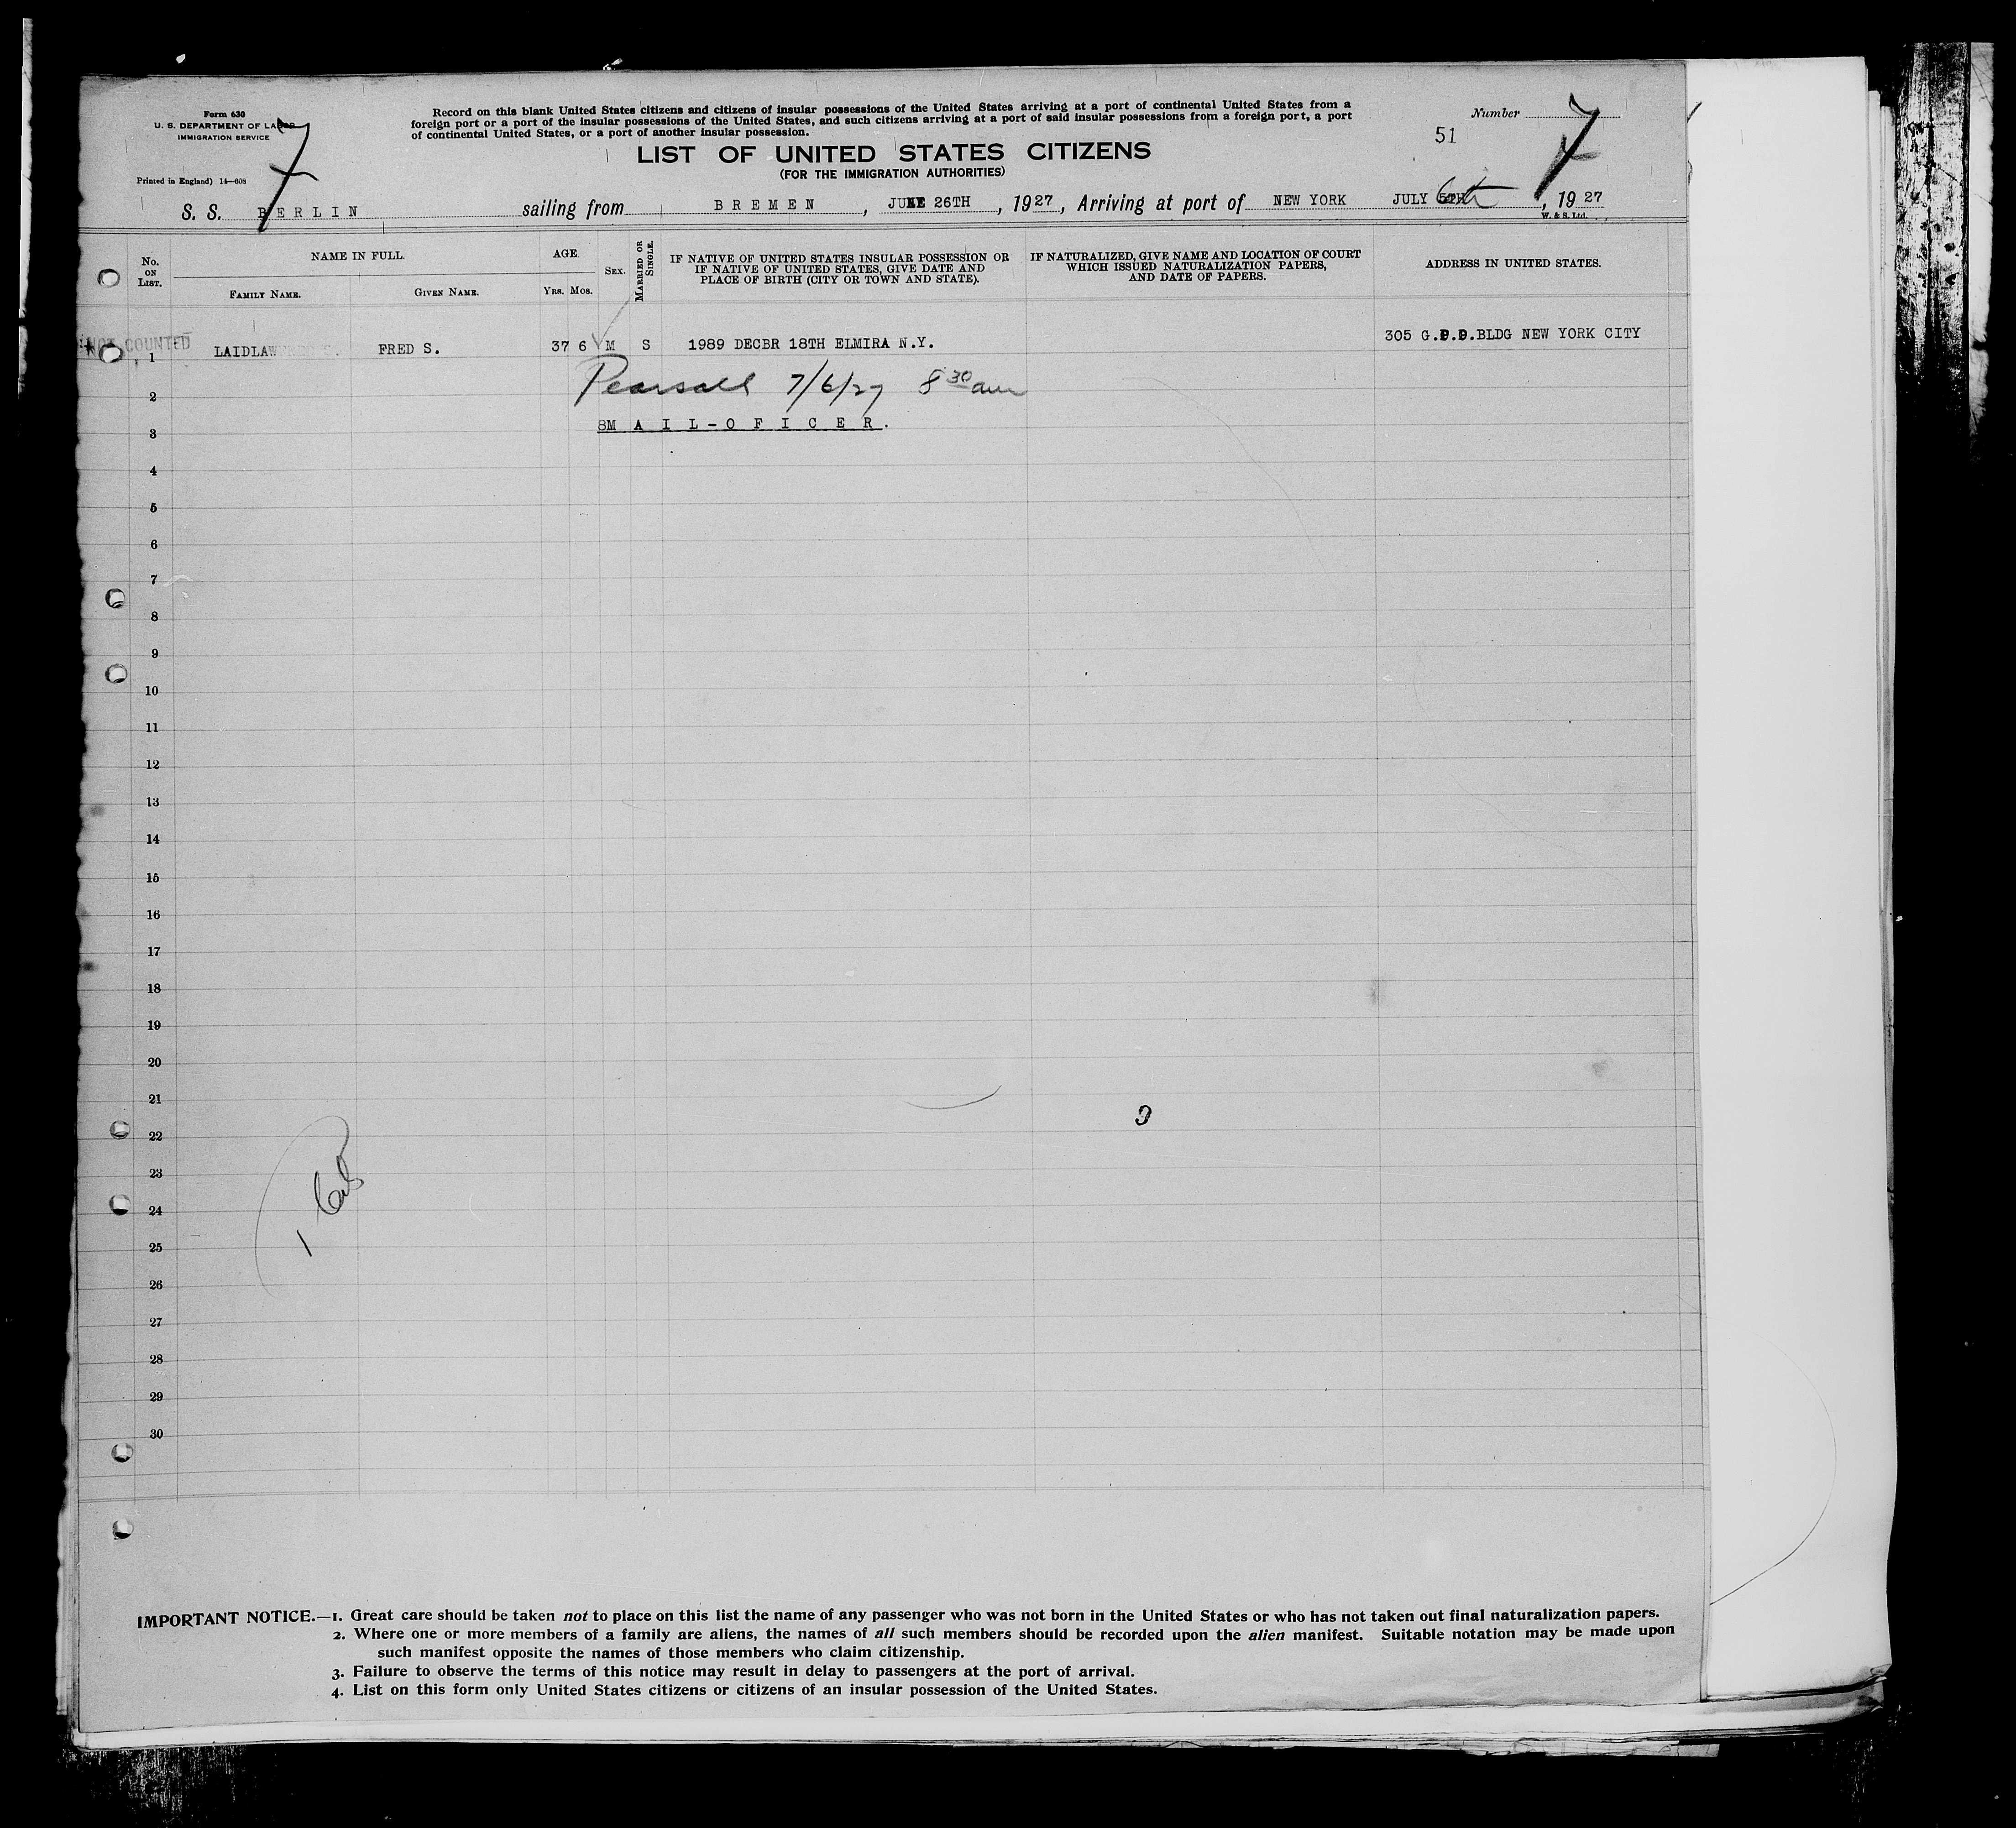 Form 630
U. S. DEPARTMENT OF LABOR
IMMIGRATION SERVICE
Printed in England) 14—608
7
Record on this blank United States citizens and citizens of insular possessions of the United States arriving at a port of continental United States from a
foreign port or a port of the insular possessions of the United States, and such citizens arriving at a port of said insular possessions from a foreign port, a port
of continental United States, or a port of another insular possession.
LIST OF UNITED STATES CITIZENS
(FOR THE IMMIGRATION AUTHORITIES)
Number
51
7
S. S. BERLIN sailing from BREMEN, JUNE 26TH, 1927, Arriving at port of NEW YORK JULY 6th, 1927
W. & S. Ltd.
No. ON LIST.
NAME IN FULL.
FAMILY NAME. GIVEN NAME.
AGE.
YRS. MOS.
SEX.
MARRIED OR SINGLE.
IF NATIVE OF UNITED STATES INSULAR POSSESSION OR
IF NATIVE OF UNITED STATES, GIVE DATE AND
PLACE OF BIRTH (CITY OR TOWN AND STATE).
IF NATURALIZED, GIVE NAME AND LOCATION OF COURT
WHICH ISSUED NATURALIZATION PAPERS,
AND DATE OF PAPERS.
ADDRESS IN UNITED STATES.
NOT COUNTED
1 LAIDLAW FRED S. 37 6 M S 1989 DECBR 18TH ELMIRA N.Y. 305 G.P.O.BLDG NEW YORK CITY
Pearsall 7/6/27 8 30 am
2
8M A I L - O F I C E R .
3
4
5
6
7
8
9
10
11
12
13
14
15
16
17
18
19
20
21
22
23
24
25
26
27
28
29
30
IMPORTANT NOTICE.—1. Great care should be taken not to place on this list the name of any passenger who was not born in the United States or who has not taken out final naturalization papers.
2. Where one or more members of a family are aliens, the names of all such members should be recorded upon the alien manifest. Suitable notation may be made upon
such manifest opposite the names of those members who claim citizenship.
3. Failure to observe the terms of this notice may result in delay to passengers at the port of arrival.
4. List on this form only United States citizens or citizens of an insular possession of the United States.